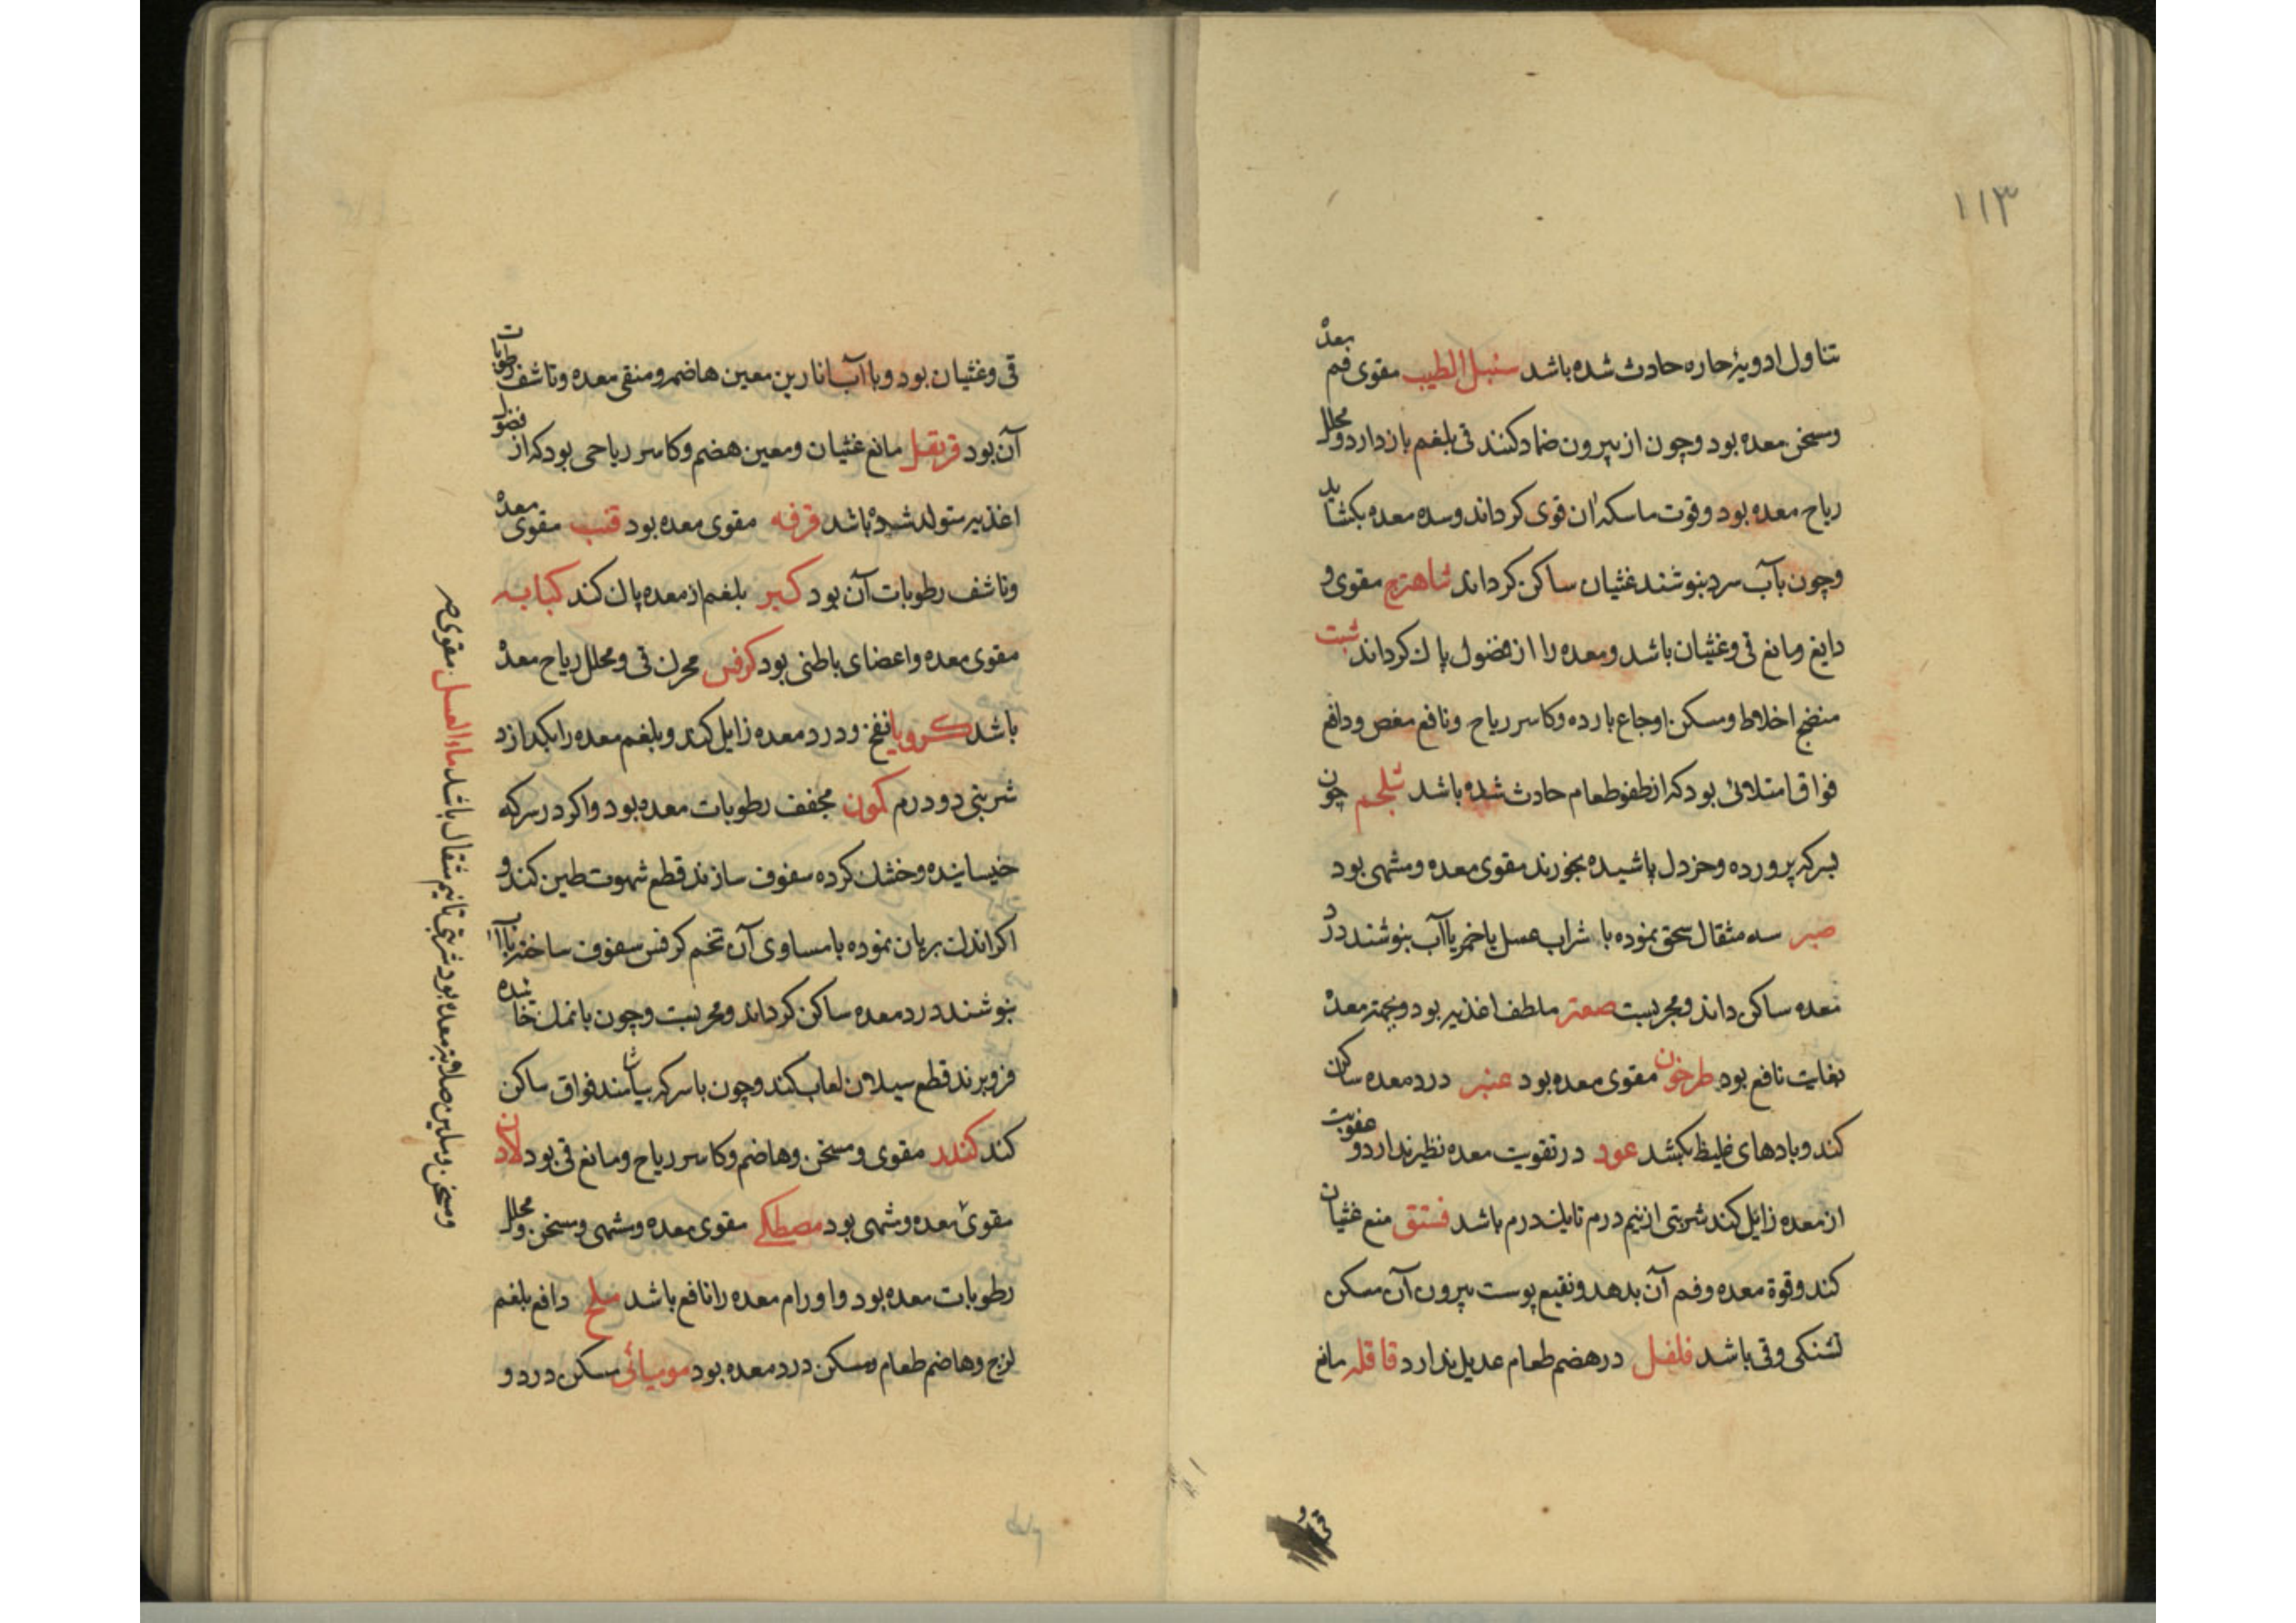 ۱۱۳
تناول ادویهٔ حاره حادث شده باشد سنبل الطیب مقوی فم معده
ومسخن معده بود وچون از بیرون ضماد کنند قی بلغم باز دارد ومحلل
ریاح معده بود وقوت ماسکه ان قوی کرداند وسده معده بکشاید
وچون بآب سرد بنوشند غثیان ساکن کرداند شاهترج مقوی و
دابغ ومانع قی وغثیان باشد ومعده را از فضول پاك کرداند شبت
منضج اخلاط ومسکن اوجاع بارده وکاسر ریاح ونافع مغص ودافع
فواق امتلائی بود که از طفو طعام حادث شده باشد شلجم چون
بسرکه پرورده وخردل پاشیده بخورند مقوی معده ومشهی بود
صبر سه مثقال سحق نموده با شراب عسل یا خمر یا آب بنوشند درد
معده ساکن داند ومجربست صعتر ملطف اغذیه بود وبجهته معده
بغایت نافع بود طرخون مقوی معده بود عنبر درد معده ساکن
کند وبادهای غلیظ بکشد عود در تقویت معده نظیر ندارد و عفونت
از معده زایل کند شربتی از نیم درم تا یك درم باشد فستق منع غثیان
کند وقوة معده وفم آن بدهد ونقیع پوست بیرون آن مسکن
تشنکی وقی باشد فلفل در هضم طعام عدیل ندارد قاقله مانع
قی و
قی وغثیان بود وبا آب انارین معین هاضمه ومنقی معده وناشف رطوبات
آن بود قرنفل مانع غثیان ومعین هضم وکاسر ریاحی بود که از فضول
اغذیه متولد شده باشد قرفه مقوی معده بود قنب مقوی معده
وناشف رطوبات آن بود کبر بلغم از معده پاك کند کبابه
مقوی معده واعضای باطنی بود کرفس محرك قی ومحلل ریاح معده
باشد کرویا نفخ ودرد معده زایل کند وبلغم معده را بکدازد
شربتی دو درم کمون مجفف رطوبات معده بود واکر در سرکه
خیسانیده وخشك کرده سفوف سازند قطع شهوت طین کند و
اکر اندك بریان نموده با مساوی آن تخم کرفس سفوف ساخته با آب
بنوشند درد معده ساکن کرداند ومجربست وچون با نمك خائیده
فرو برند قطع سیلان لعاب کند وچون با سرکه بیاشامند فواق ساکن
کند کندر مقوی ومسخن وهاضم وکاسر ریاح ومانع قی بود لادن
مقویٔ معده ومشهی بود مصطکی مقوی معده ومشهی ومسخن ومحلل
رطوبات معده بود واورام معده را نافع باشد ملح دافع بلغم
لزج وهاضم طعام ومسکن درد معده بود مومیائی مسکن درد و
ومسخن وملین صلابة معده بود شربتی تا نیم مثقال باشد ماء العسل مقوی